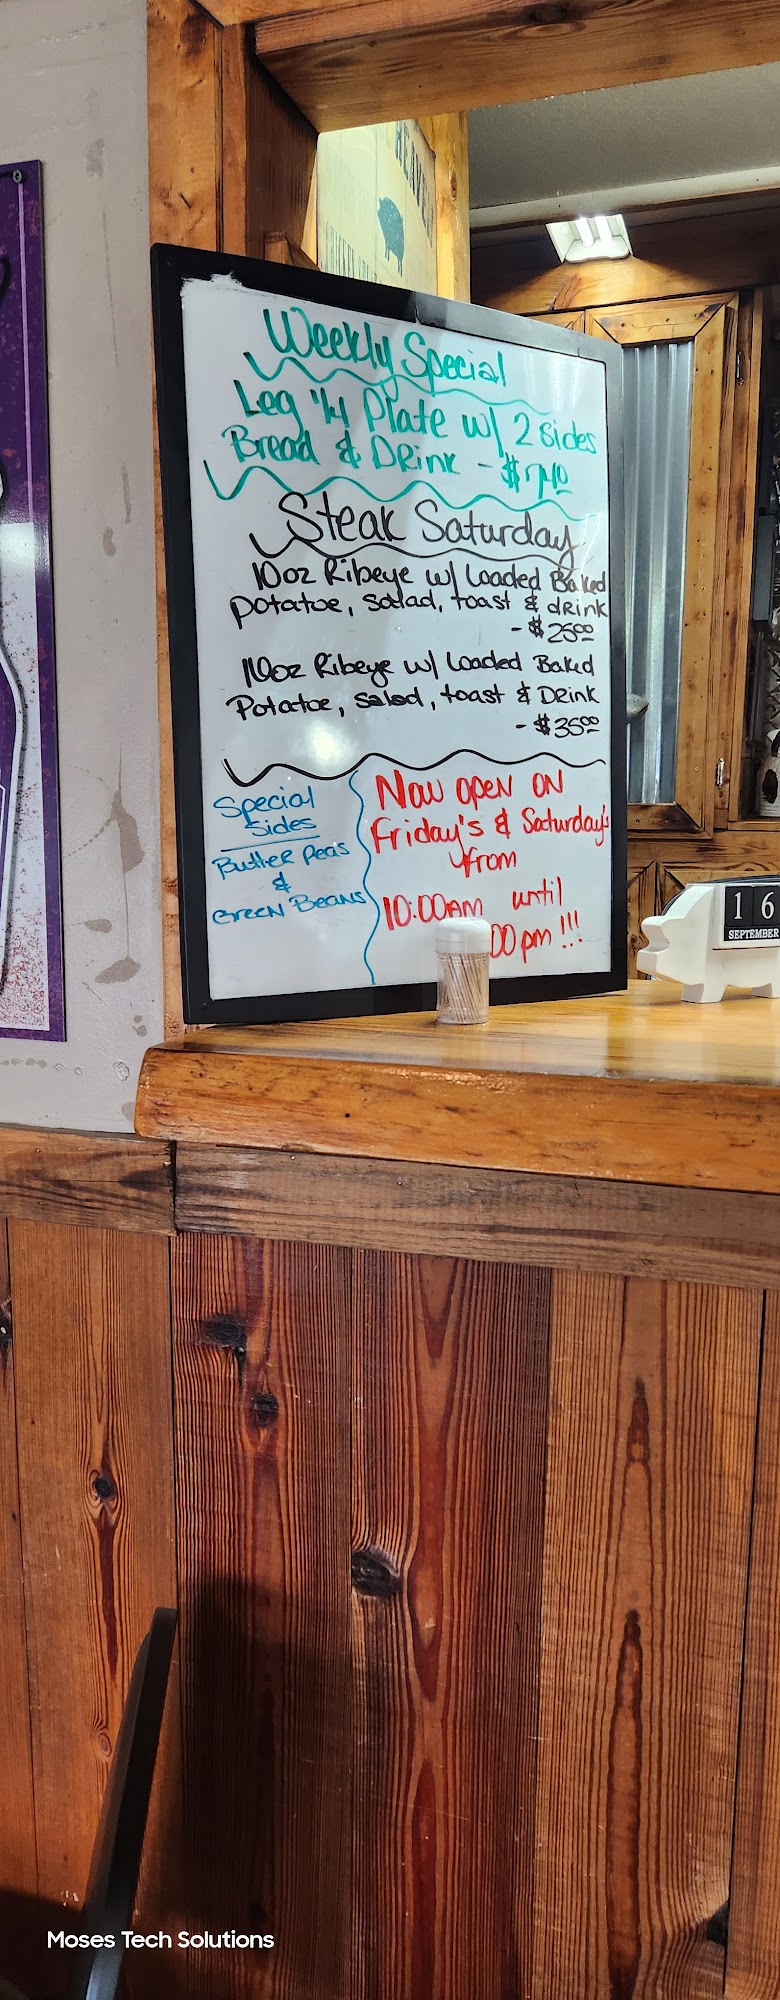 HEAVEN
Weekly Special
Leg 1/4 Plate w/ 2 sides
Bread & Drink - $7.40
Steak Saturday
10oz Ribeye w/ Loaded Baked
potatoe, salad, toast & drink
- $25.00
Ribeye w/ Loaded Baked
Potatoe, salad, toast & Drink
- $35.00
Special
Sides
Butter Peas
&
Green Beans
Now open on
Friday's & Saturday's
from
10:00am until
00 pm !!!
16
SEPTEMBER
Moses Tech Solutions